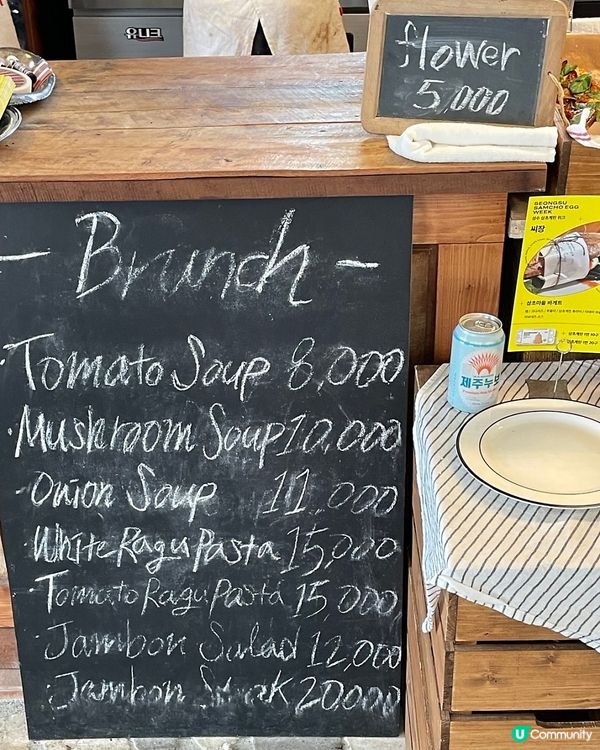 유니크
flower
5,000
- Brunch -
Tomato Soup 8,000
Mushroom Soup 10,000
Onion Soup 11,000
White Ragu Pasta 15,000
Tomato Ragu Pasta 15,000
Jambon Salad 12,000
Jambon Steak 20,000
SEONGSU
SAMCHO EGG
WEEK
성수 삼초계란 위크
씨장
삼초마을 바게트
제주누보
U Community